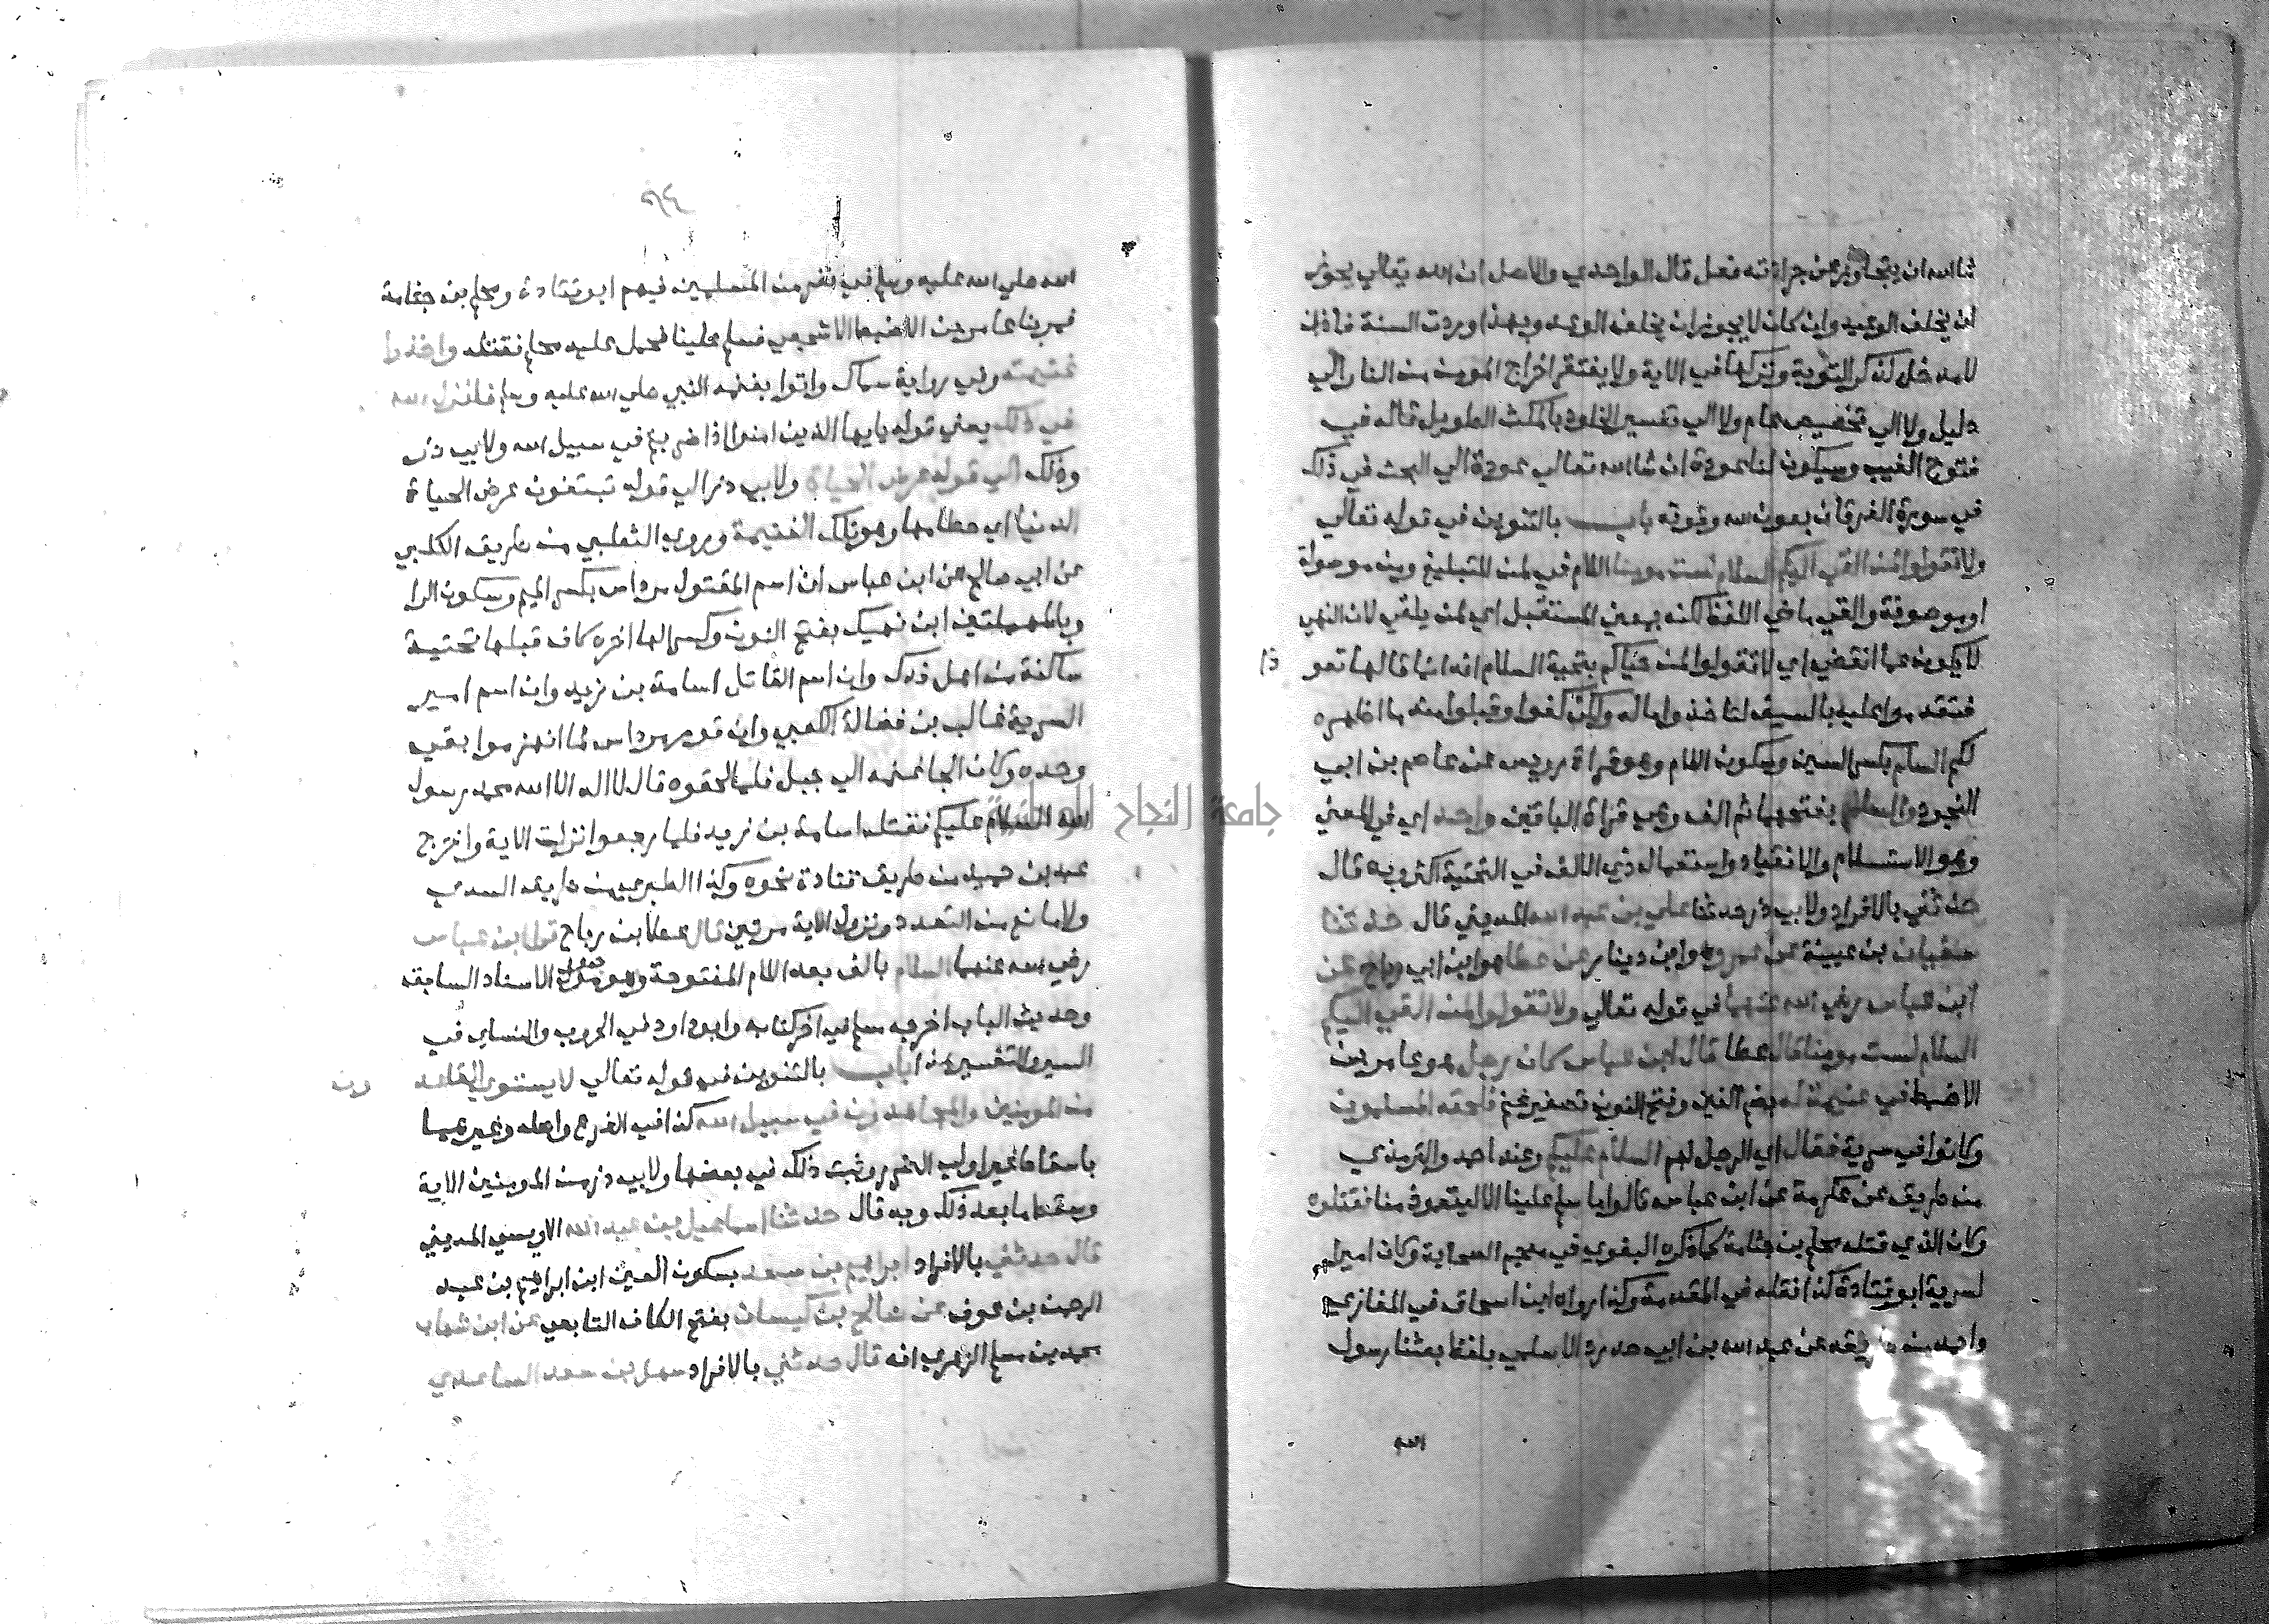 شا الله ان يتجاوز عن جزاءته فعل قال الواحدي والاصل ان الله تعالي يجوز
ان يخلف الوعيد وان كان لا يجوز ان يخلف الوعد وبهذا وردت السنة فاذن
لا مدخل لذكر التوبة وتركها في الاية ولا يفتقر اخراج المومن من النار الي
دليل ولا الي تخصيص عام ولا الي تفسير الخلود بالمكث الطويل قاله في
فتوح الغيب وسيكون لنا عودة ان شا الله تعالي عودة الي البحث في ذلك
في سورة الفرقان بعون الله وقوته باب بالتنوين في قوله تعالي
ولا تقولوا لمن القي اليكم السلام لست مومنا اللام في لمن للتبليغ ومن موصولة
او موصوفة والقي ماضي اللفظ لكنه بمعني المستقبل اي لمن يلقي لان النهي
لا يكون عما انقضي اي لا تقولوا لمن حياكم بتحية السلام انه انما قالها تعو
ذا
فتقدموا عليه بالسيف لتاخذوا ماله ولكن كفوا وقبلوا منه ما اظهره
لكم السلم بكسر السين وسكون اللام وهو قراة رويس عن عاصم بن ابي
النجود والسلم بفتحهما ثم الف وهي قراة الباقين واحد اي في المعني
وهو الاستسلام والانقياد واستعمال ذي الالف في التحتية اكثر وبه قال
حدثني بالافراد ولابي ذر حدثنا علي بن عبد الله المديني قال حدثنا
سفيان بن عيينة عن عمرو هو ابن دينار عن عطا هو ابن ابي رباح عن
ابن عباس رضي الله عنهما في قوله تعالي ولا تقولوا لمن القي اليكم
السلام لست مومنا قال عطا قال ابن عباس كان رجل هو عامر بن
الاضبط في غنيمة له بضم الغين وفتح النون تصغير غنم فلحقه المسلمون
وكانوا في سرية فقال اي الرجل لهم السلام عليكم وعند احمد والترمذي
من طريق عن عكرمة عن ابن عباس قالوا ما سلم علينا الا ليتعوذ منا فقتلوه
وكان الذي قتله محلم بن جثامة كما ذكره البغوي في معجم الصحابة وكان امير
لسرية ابو قتادة كذا نقله في المقدمة وكذا رواه ابن اسحاق في المغازي
واحمد من طريقه عن عبد الله بن ابي حدرد الاسلمي بلفظ بعثنا رسول
الله
الله صلي الله عليه وسلم في نفر من المسلمين فيهم ابو قتادة ومحلم بن جثامة
فمر بنا عامر بن الاضبط الاشجعي فسلم علينا فحمل عليه محلم فقتله واخذوا
غنيمته وفي رواية سماك واتوا بغنمه النبي صلي الله عليه وسلم فانزل الله
في ذلك يعني قوله يايها الذين امنوا اذا ضربتم في سبيل الله ولابي ذر
وذلك الي قوله عرض الحياة ولابي ذر الي قوله تبتغون عرض الحياة
الدنيا اي حطامها وهو تلك الغنيمة وروي الثعلبي من طريق الكلبي
عن ابي صالح عن ابن عباس ان اسم المقتول مرداس بكسر الميم وسكون الرا
وبالمهملتين ابن نهيك بفتح النون وكسر الها اخره كاف قبلها تحتية
ساكنة من اهل فدك وان اسم القاتل اسامة بن زيد وان اسم امير
السرية غالب بن فضالة الكعبي وان قوم مرداس لما انهزموا بقي
وحده وكان الجا غنمه الي جبل فلما لحقوه قال لا اله الا الله محمد رسول
الله السلام عليكم فقتله اسامة بن زيد فلما رجعوا نزلت الاية واخرج
عبد بن حميد من طريق قتادة نحوه وكذا الطبري من طريق السدي
ولا مانع من التعدد ونزول الاية مرتين قال عطا بن رباح قرا ابن عباس
رضي الله عنهما السلام بالف بعد اللام المفتوحة وهو موصول الاسناد السابق
وحديث الباب اخرجه مسلم في اخر كتابه وابو داود في الحروب والنساي في
السير والتفسير هذا باب بالتنوين في قوله تعالي لا يستوي القاعد
ون
من المومنين والمجاهدون في سبيل الله كذا في الفرع واصله وغيرهما
باسقاط غير اولي الضرر وثبت ذلك في بعضها ولابي ذر من المومنين الاية
وسقط ما بعد ذلك وبه قال حدثنا اسماعيل بن عبد الله الاويسي المديني
قال حدثني بالافراد ابراهيم بن سعد بسكون العين ابن ابراهيم بن عبد
الرحمن بن عوف عن صالح بن كيسان بفتح الكاف التابعي عن ابن شهاب
محمد بن مسلم الزهري انه قال حدثني بالافراد سهل بن سعد الساعدي
جامعة النجاح الوطنية